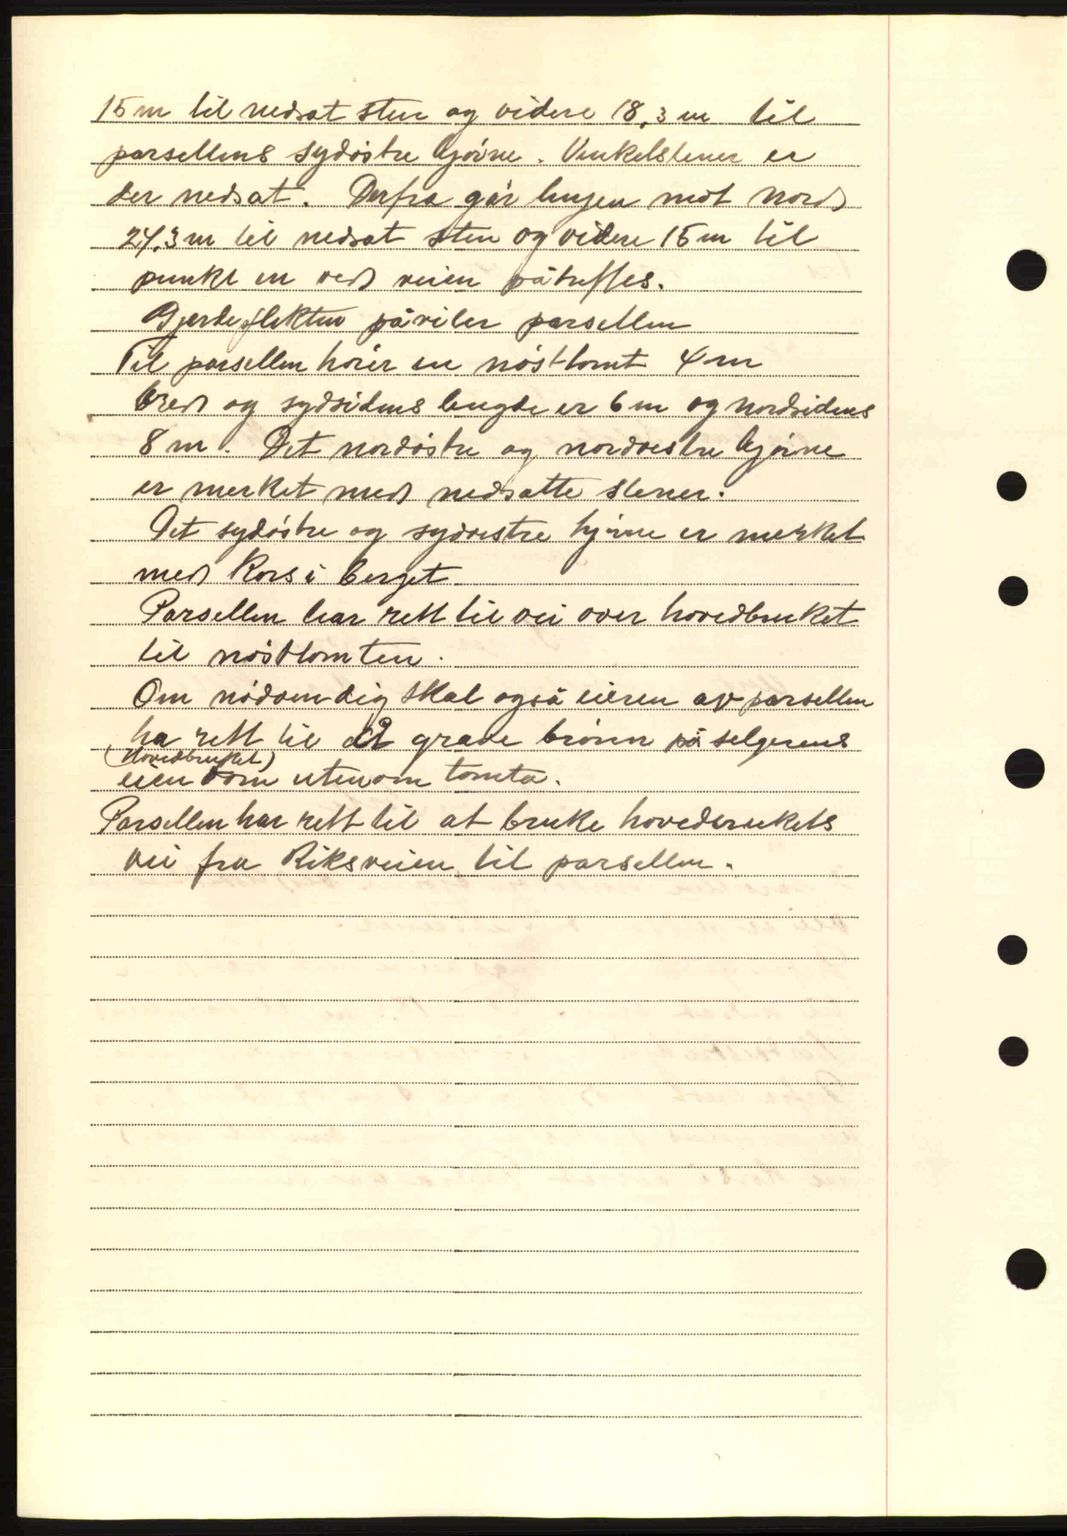 15 m til nedsat sten og videre 18,3 m til
parsellens sydöstre hjörne. Vinkelstener er
der nedsat. Derfra går linjen mot nord
24,3 m til nedsat sten og videre 15 m til
punkt en ved veien påtreffes.
Gjerdeplikten påviler parsellen
Til parsellen hörer en nösttomt 4 m
bred og sydsidens lengde er 6 m og nordsidens
8 m. Det nordöstre og nordvestre hjörne
er merket med nedsatte stener.
Det sydöstre og sydvestre hjörne er merket
med Kors i berget.
Parsellen har rett til vei over hovedbruket
til nösttomten.
Om nödvendig skal også eieren av parsellen
ha rett til å grave brönn på selgerens
(Hovedbruket)
eiendom utenom tomta.
Parsellen har rett til at bruke hovedbrukets
vei fra Riksveien til parsellen.